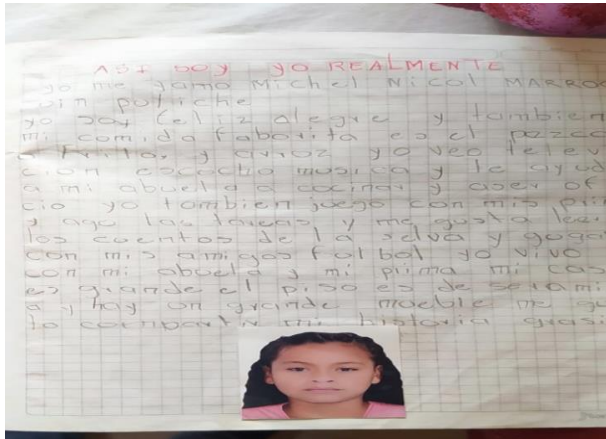 ASI SOY YO REALMENTE
yo me yamo Michel Nicol MARROQ
uin poliche
yo soy feliz alegre y tambien
mi comida faborita es el pezca
o Frito, y arroz yo veo telev
cion escocho musica y le ayud
a mi abuela a cocinar y aser of
cio yo tambien juego con mis pri
y ago las tareas y me gusta leer
los cuentos de la selva y gugar
con mis amigos fulbol yo vivo
con mi abuela y mi prima mi cas
es grande el piso es de serami
a y hay un grande mueble me gu
to compartir mi historia grasi